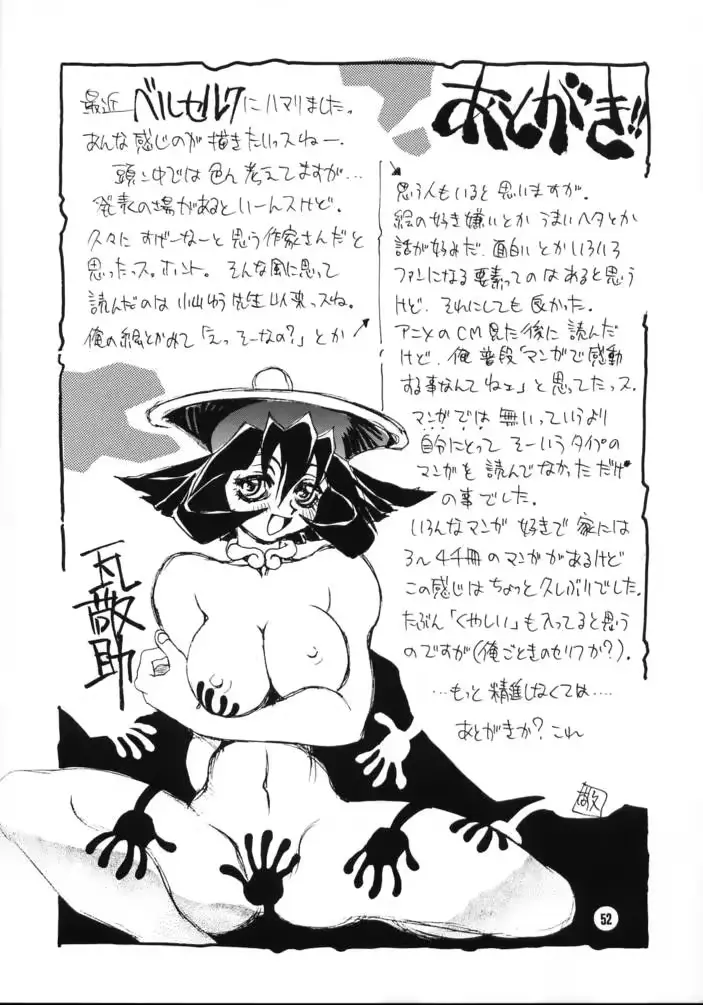 あとがき!!
最近 ベルセルクにハマリました。
あんな感じのが描きたいっスねー。
頭ン中では色ん考えてますが…
発表の場があるといーんスけど。
久々にすげーなーと思う作家さんだと
思ったっス。ホント。そんな風に思って
読んだのは小山ゆう先生以来っスね。
俺の絵とかみて「えっそーなの?」とか
思う人もいると思いますが。
絵の好き嫌いとかうまいヘタとか
話が好みだ、面白いとかいろいろ
ファンになる要素ってのはあると思う
けど、それにしても良かった。
アニメのCM見た後に読んだ
けど、俺普段「マンガで感動
する事なんてねェ」と思ってたっス。
マンガでは無いっていうより
自分にとってそーいうタイプの
マンガを読んでなかっただけ
の事でした。
いろんなマンガ好きで家には
3〜4千冊のマンガがあるけど
この感じはちょっと久しぶりでした。
たぶん「くやしい」も入ってると思う
のですが(俺ごときのセリフか?)。
…もっと精進しなくては…
あとがきか?これ
瓦敬助
敬
52